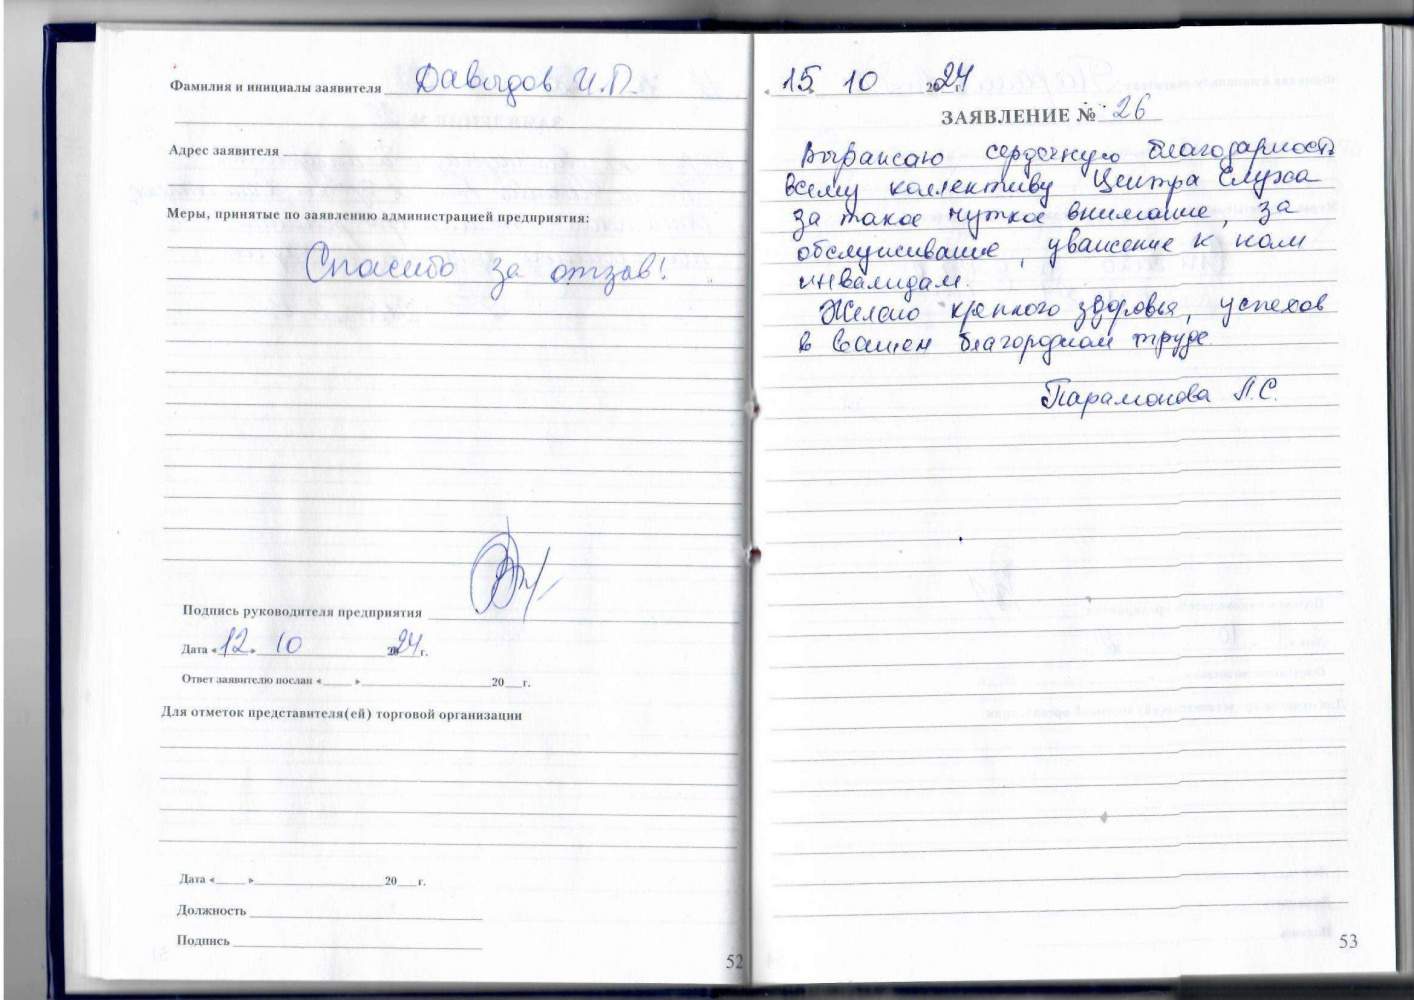 Фамилия и инициалы заявителя Давыдов И.П.
Адрес заявителя
Меры, принятые по заявлению администрацией предприятия:
Спасибо за отзыв!
Подпись руководителя предприятия
Дата «12» 10 2024 г.
Ответ заявителю послан «___» ___ 20__г.
Для отметок представителя(ей) торговой организации
Дата «___» ___ 20__г.
Должность
Подпись
52
15 10 2024 г.
ЗАЯВЛЕНИЕ № 26
Выражаю сердечную благодарность
всему коллективу Центра Слуха
за такое чуткое внимание, за
обслуживание, уважение к нам
инвалидам.
Желаю крепкого здоровья, успехов
в вашем благородном труде
Парамонова Л.С.
53